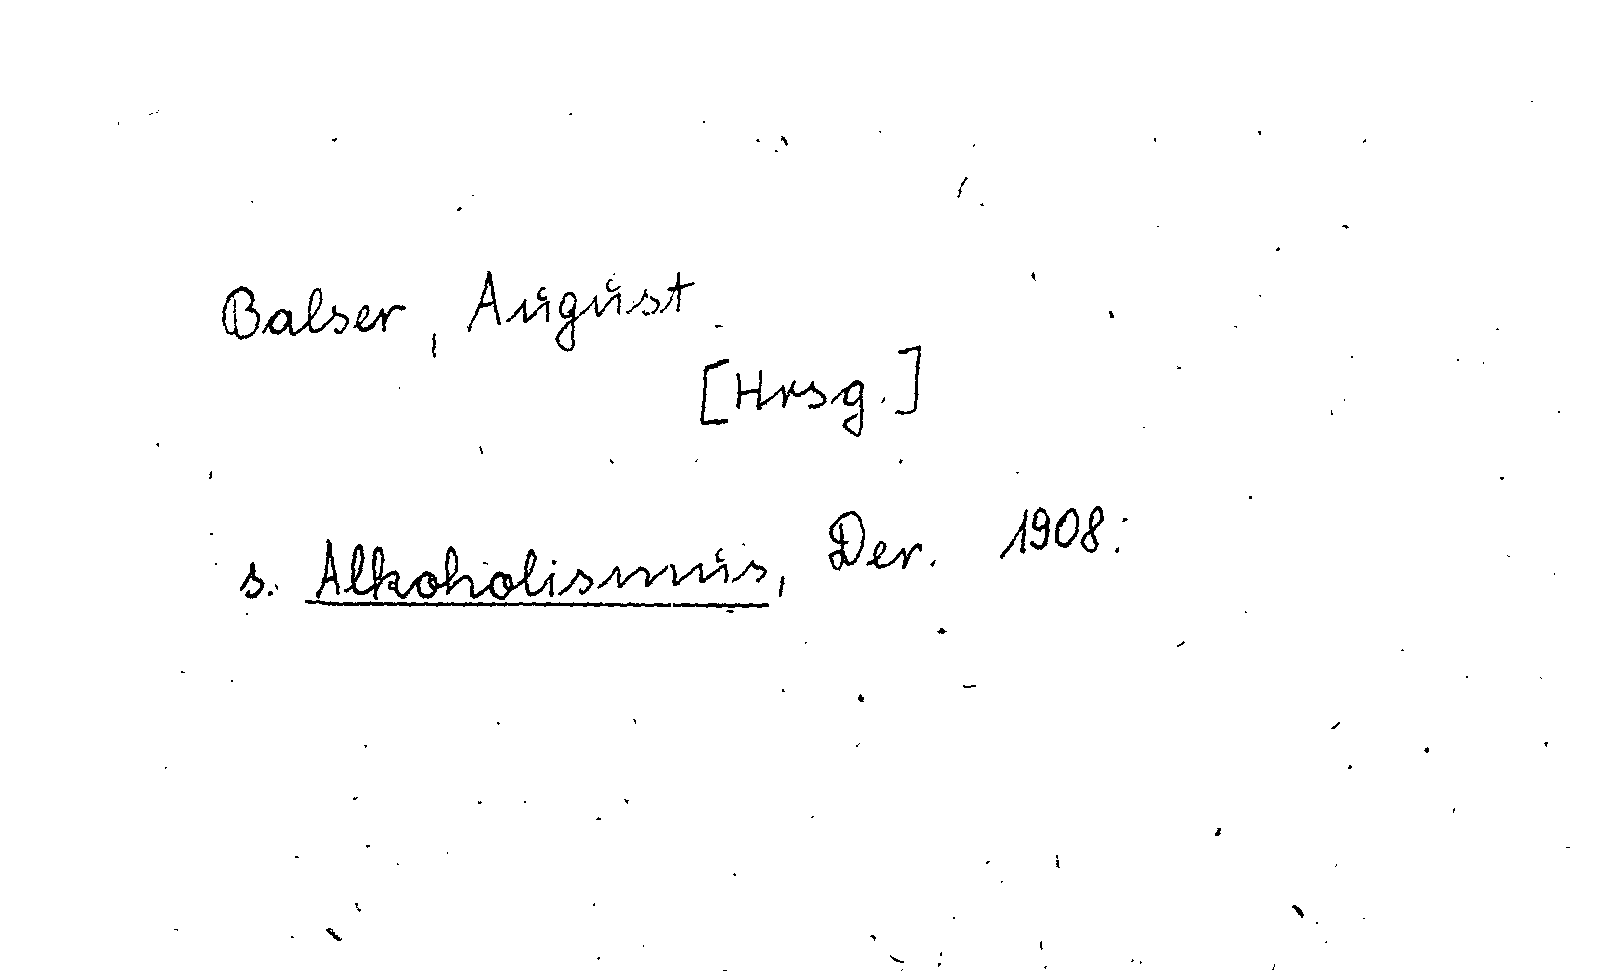 Balser, August
[Hrsg.]
s. Alkoholismus, Der. 1908.